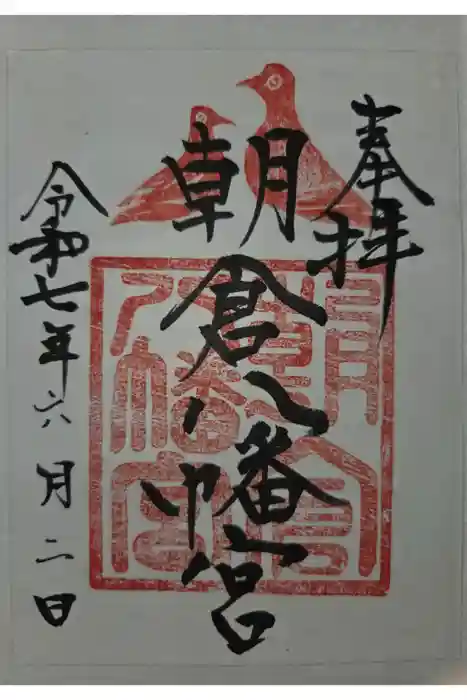 奉拝
朝倉八幡宮
令和七年六月二日
朝倉八幡宮印